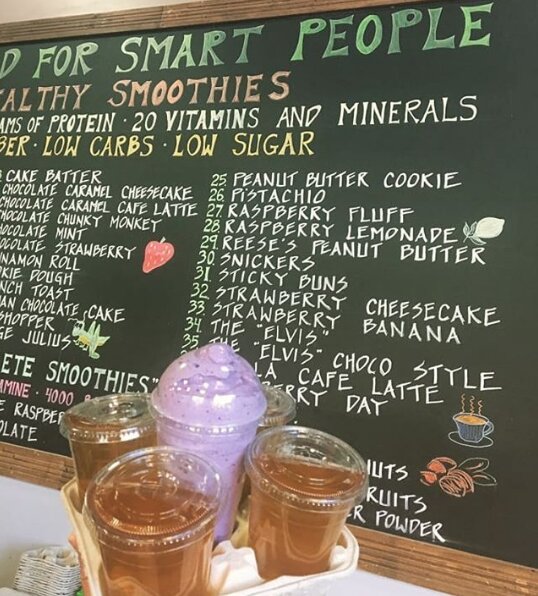 D FOR SMART PEOPLE
EALTHY SMOOTHIES
AMS OF PROTEIN · 20 VITAMINS AND MINERALS
BER · LOW CARBS · LOW SUGAR
CAKE BATTER
CHOCOLATE CARAMEL CHEESECAKE
CHOCOLATE CARAMEL CAFE LATTE
CHOCOLATE CHUNKY MONKEY
CHOCOLATE MINT
OCOLATE STRAWBERRY
NNAMON ROLL
OKIE DOUGH
NCH TOAST
AN CHOCOLATE CAKE
SHOPPER
GE JULIUS
ETE SMOOTHIES"
AMINE · 4000
E RASPBE
OLATE
25 PEANUT BUTTER COOKIE
26 PISTACHIO
27 RASPBERRY FLUFF
28 RASPBERRY LEMONADE
29 REESE'S PEANUT BUTTER
30 SNICKERS
31 STICKY BUNS
32 STRAWBERRY CHEESECAKE
33 STRAWBERRY BANANA
34 THE "ELVIS"
35 THE "ELVIS" CHOCO STYLE
LA CAFE LATTE
ERRY DAY
NUTS
RUITS
R POWDER